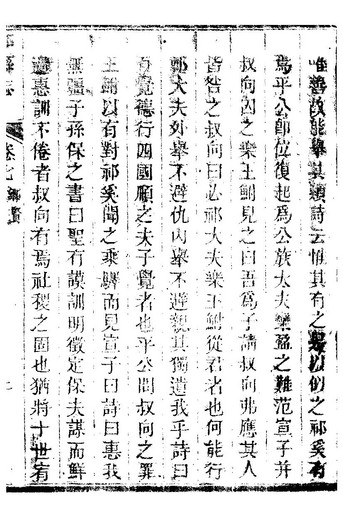 唯善故能舉其類詩云惟其有之是以似之祁奚有
焉平公即位復起為公族大夫欒盈之難范宣子并
叔向囚之樂王鮒見之曰吾為子請叔向弗應其人
皆咎之叔向曰必祁大夫樂王鮒從君者也何能行
祁大夫外舉不避仇內舉不避親其獨遺我乎詩曰
有覺德行四國順之夫子覺者也平公問叔向之罪
王鮒以有對祁奚聞之乘驛而見宣子曰詩曰惠我
無疆子孫保之書曰聖有謨訓明徵定保夫謀而鮮
過惠訓不倦者叔向有焉社稷之固也猶將十世宥
卷七